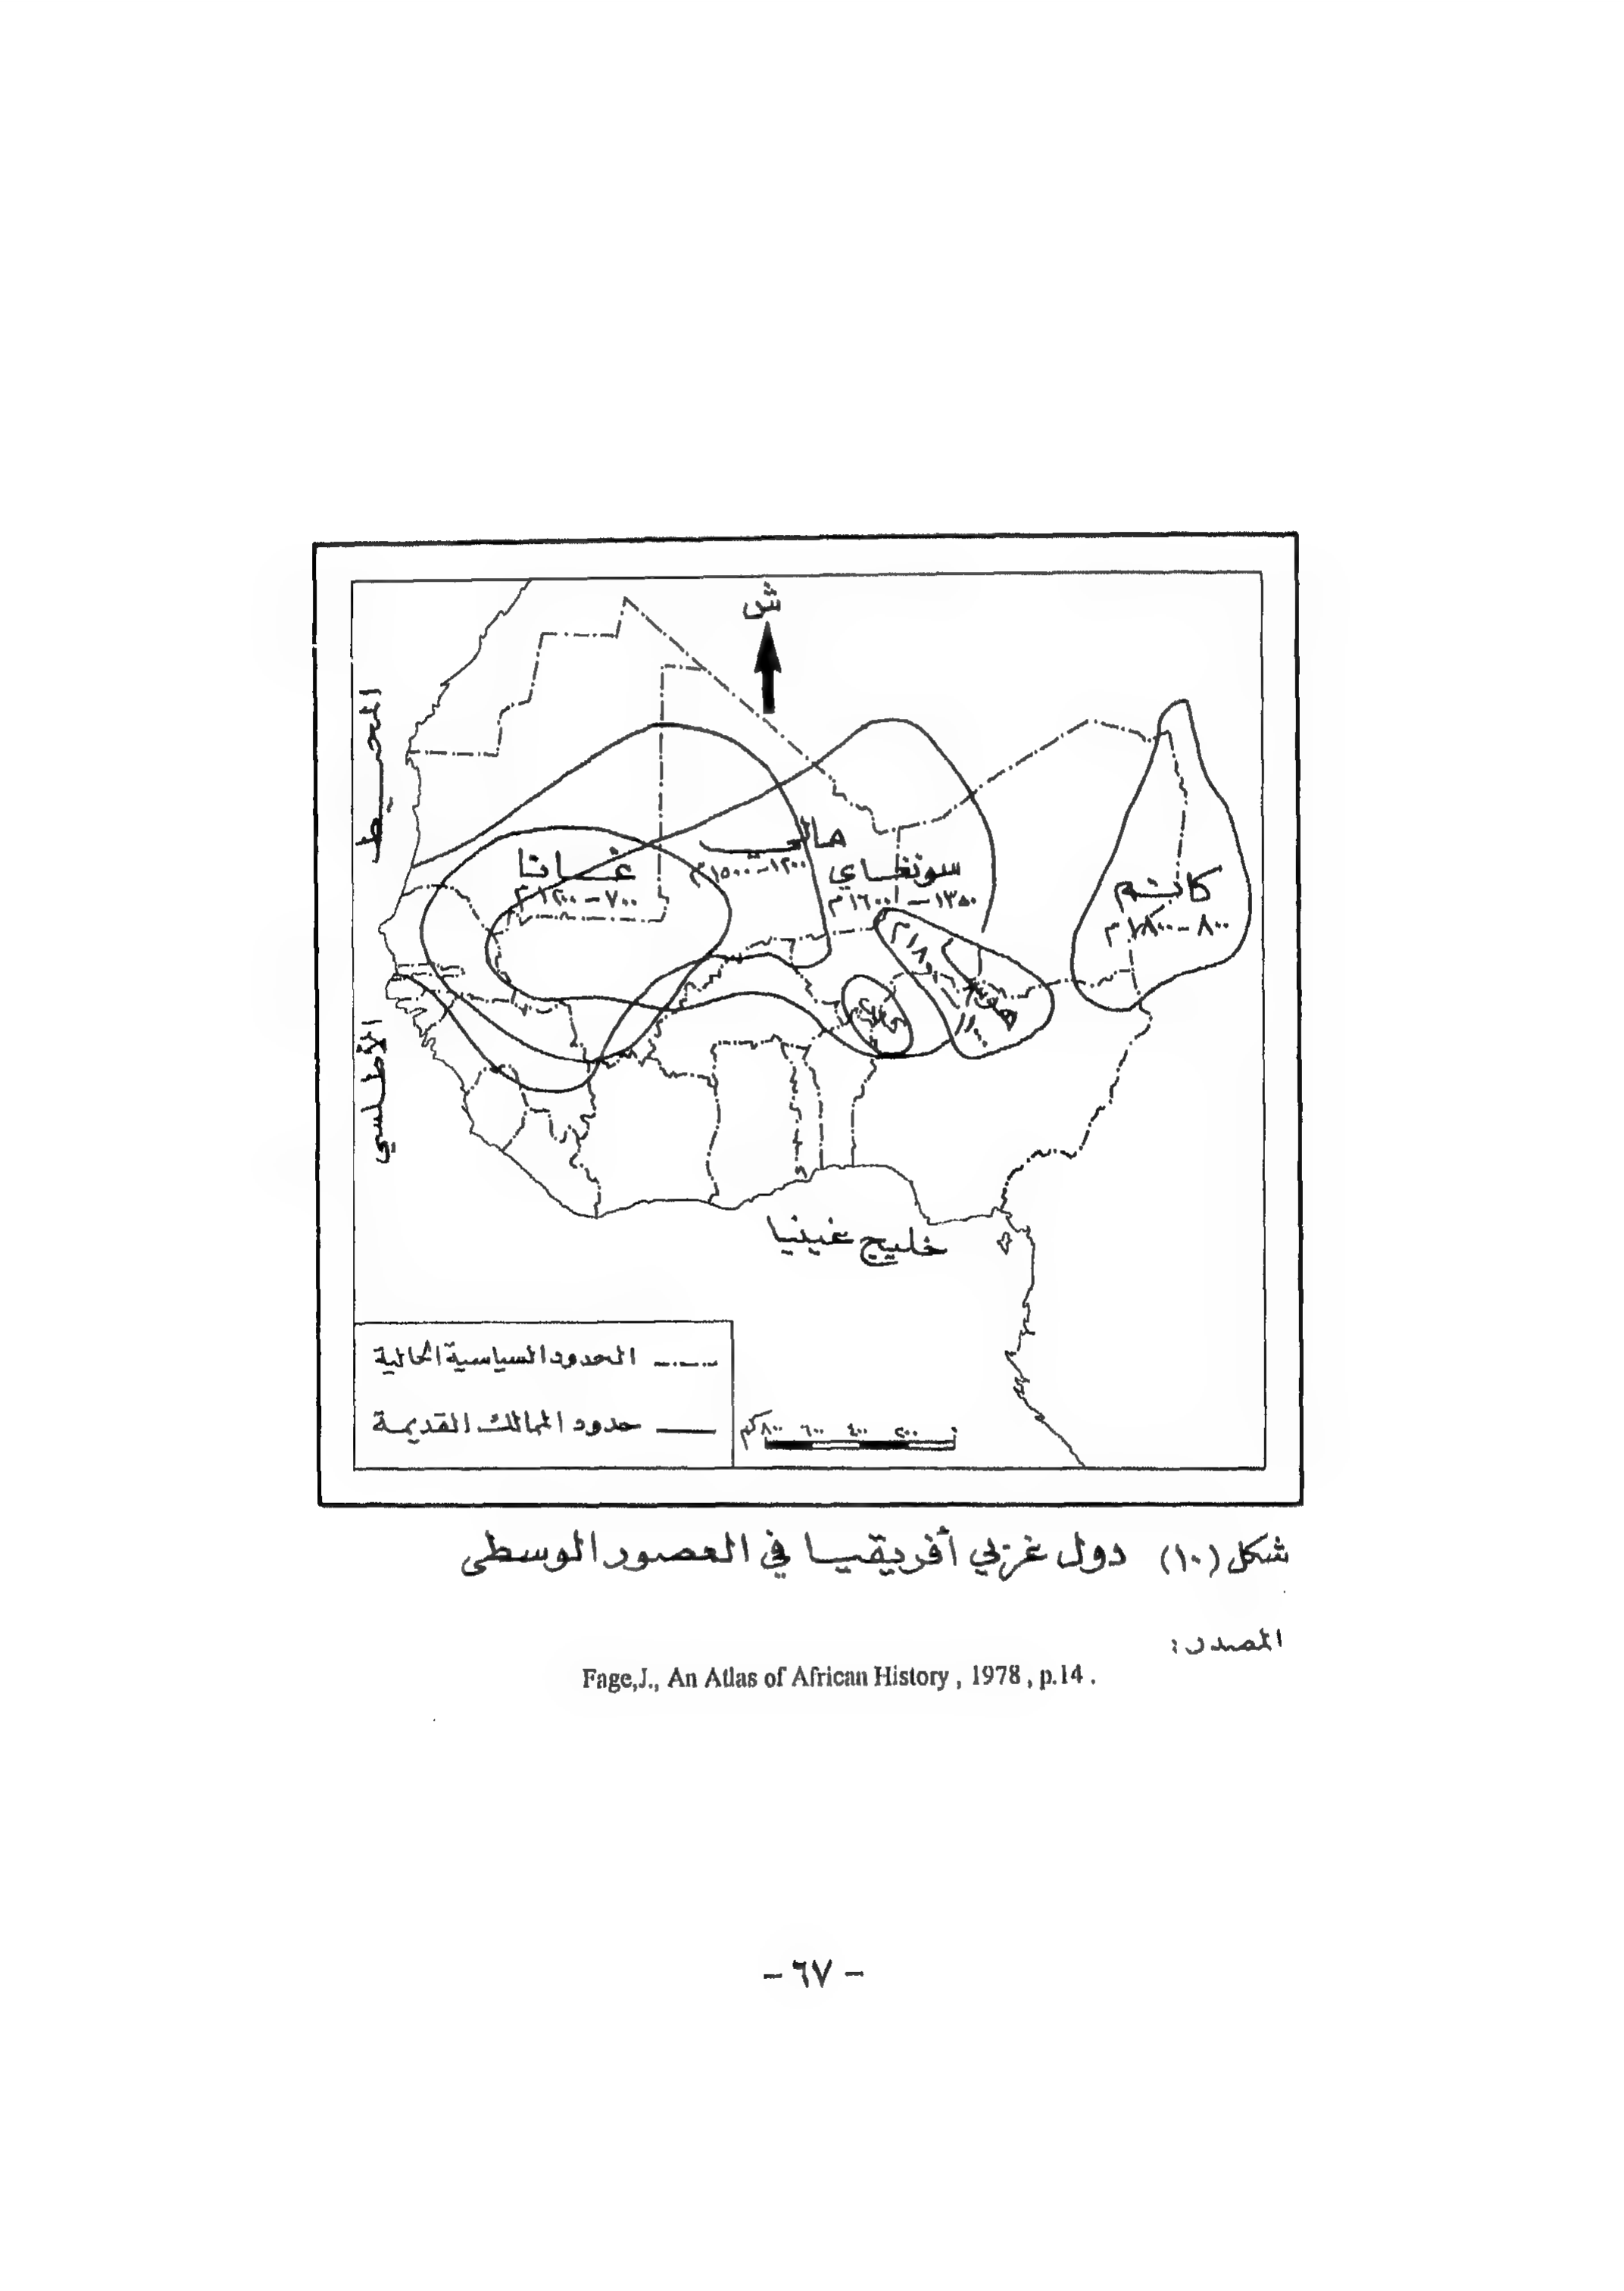 ش
المحيط
الأطلسي
مالي
١٢٠٠–١٥٠٠م
غانا
٧٠٠–١٢٠٠م
سونغاي
١٣٥٠–١٦٠٠م
كانم
٨٠٠–١٨٠٠م
خليج غينيا
الحدود السياسية الحالية
حدود الممالك القديمة
٠ ٢٠٠ ٤٠٠ ٦٠٠ ٨٠٠كم
شكل (١٠) دول غربي أفريقيا في العصور الوسطى
المصدر:
Fage,J., An Atlas of African History , 1978 , p.14 .
– ٦٧ –